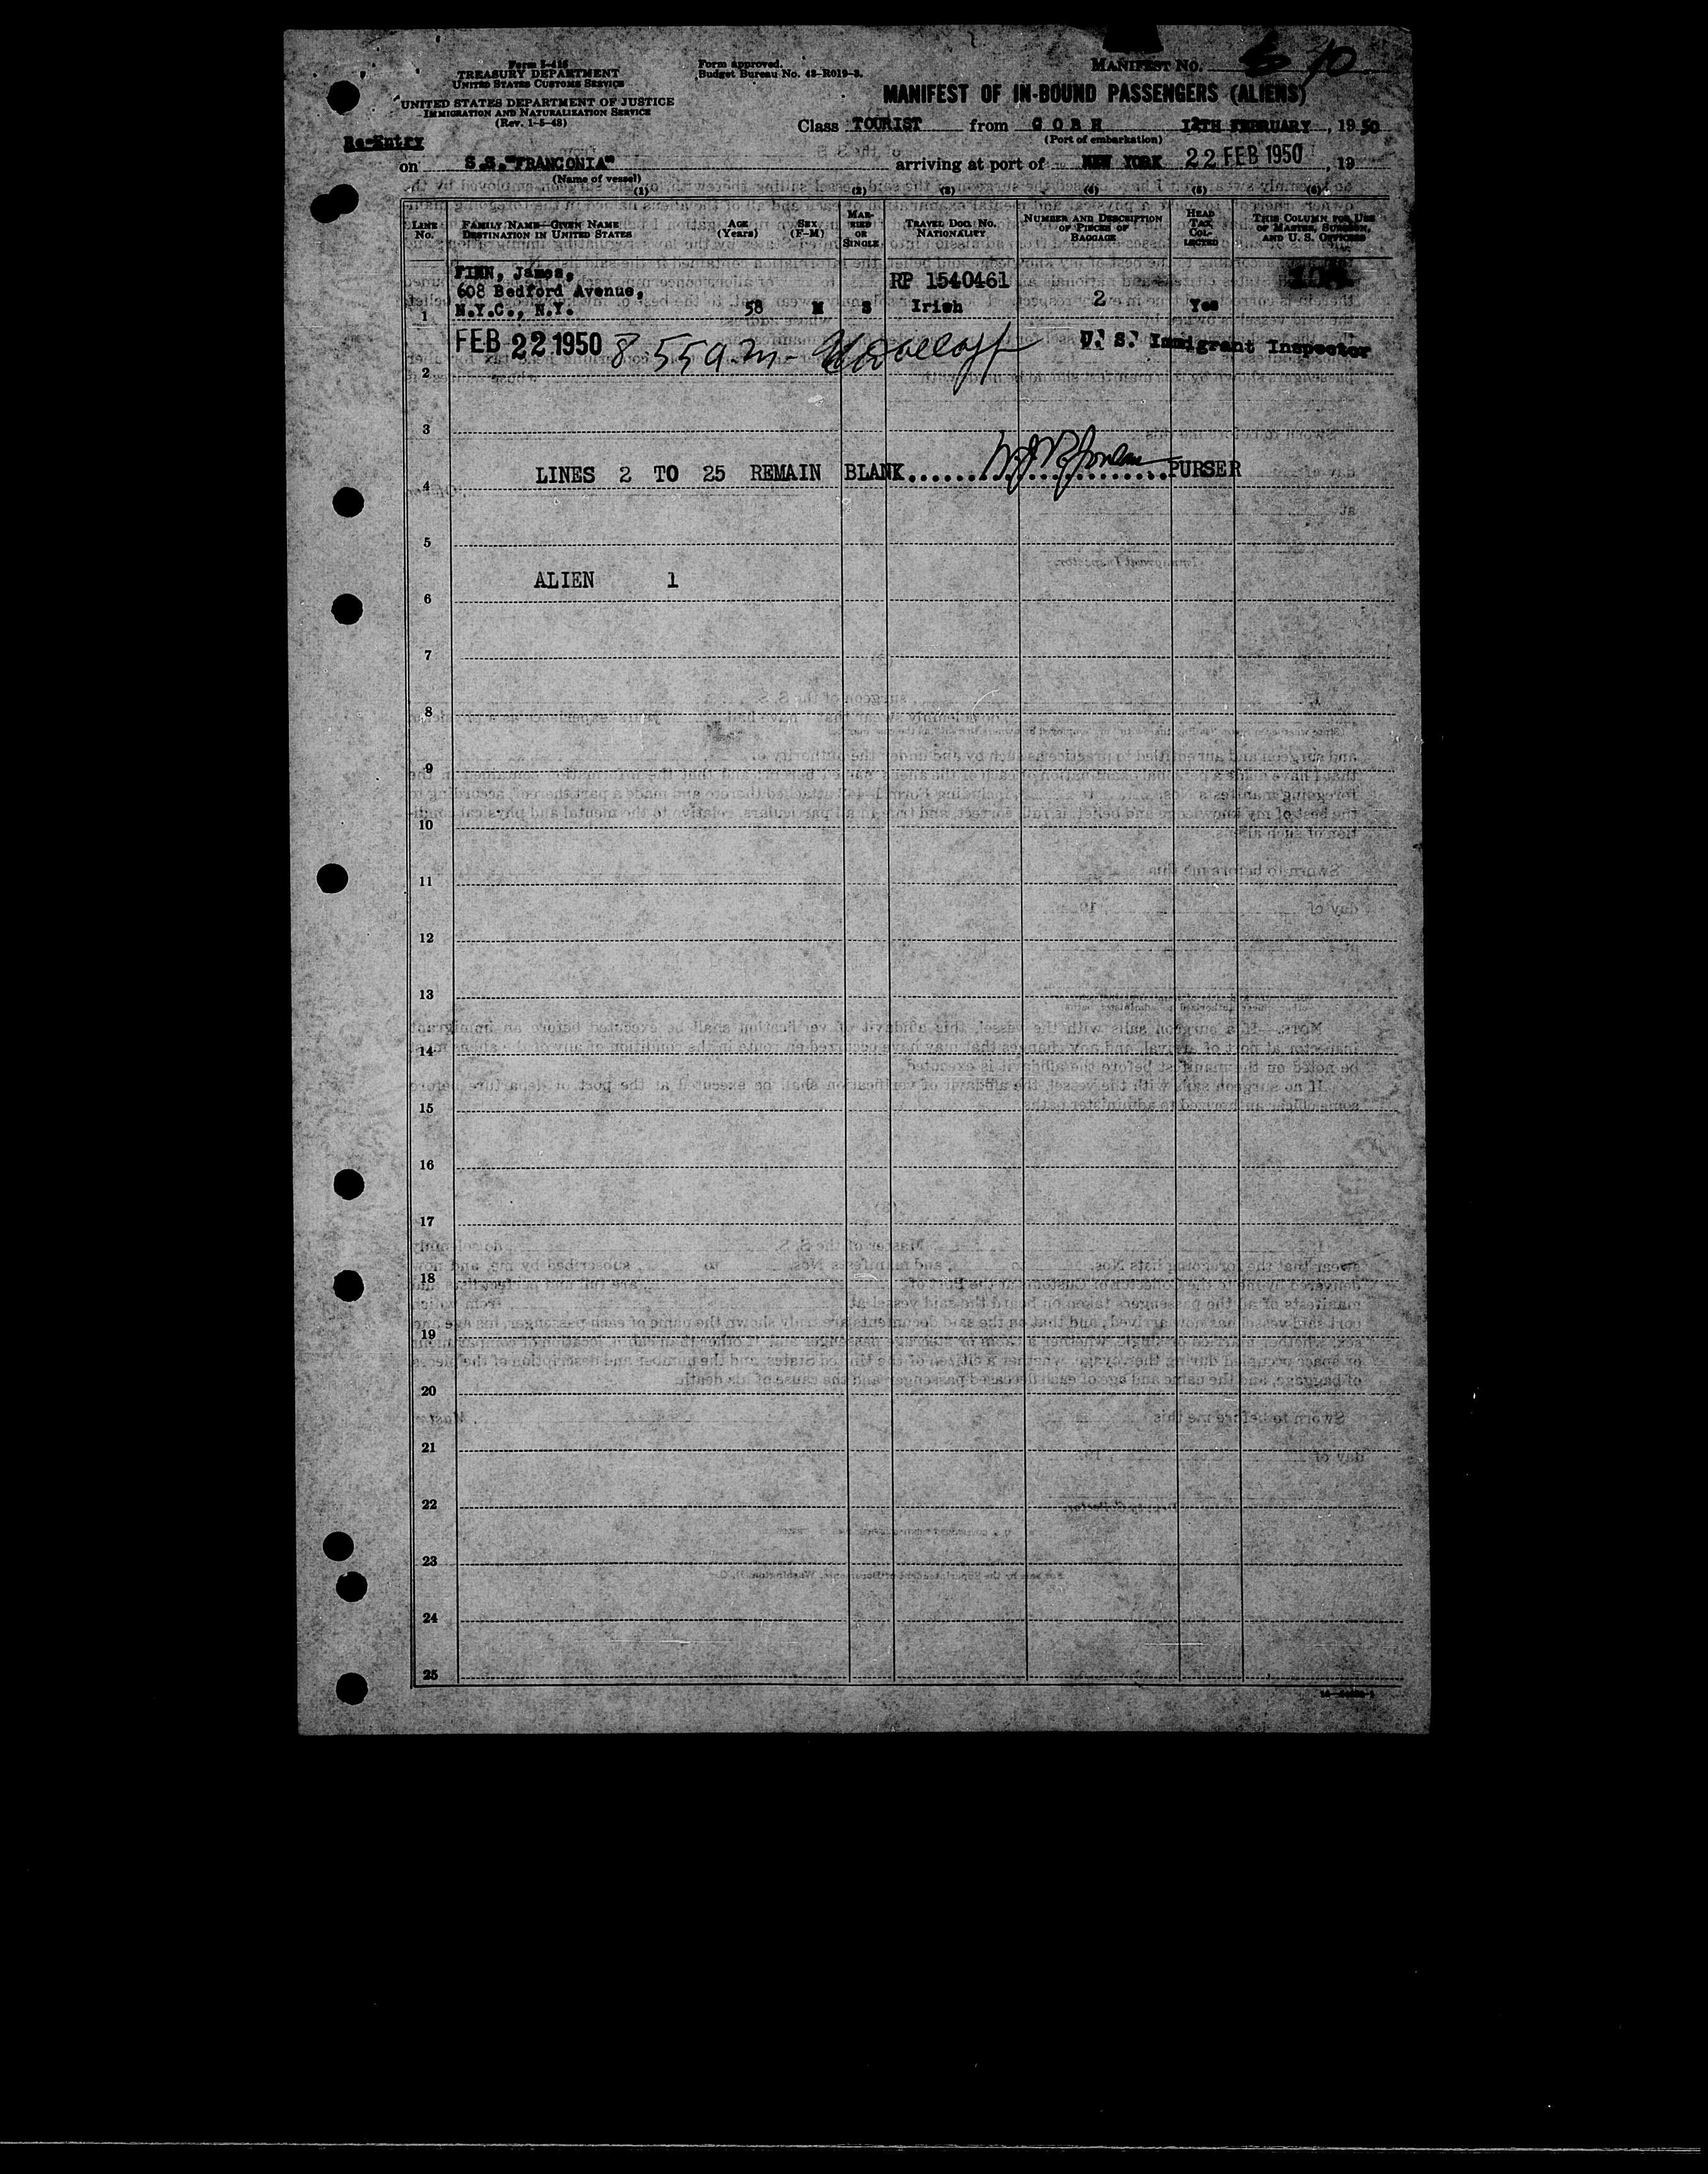 Form I-416
TREASURY DEPARTMENT
UNITED STATES CUSTOMS SERVICE
UNITED STATES DEPARTMENT OF JUSTICE
IMMIGRATION AND NATURALIZATION SERVICE
(Rev. 1-5-48)
Form approved.
Budget Bureau No. 43-R019-3.
MANIFEST NO.
MANIFEST OF IN-BOUND PASSENGERS (ALIENS)
Class TOURIST from COBH 12TH FEBRUARY, 1950
(Port of embarkation)
Re-Entry
on S.S. "FRANCONIA" arriving at port of NEW YORK 22 FEB 1950, 19
(Name of vessel)
(1) (2) (3) (4) (5) (6)
LINE NO. FAMILY NAME—GIVEN NAME DESTINATION IN UNITED STATES AGE (Years) SEX (F-M) MARRIED OR SINGLE TRAVEL DOC. NO. NATIONALITY NUMBER AND DESCRIPTION OF PIECES OF BAGGAGE HEAD TAX COLLECTED THIS COLUMN FOR USE OF MASTER, SURGEON, AND U. S. OFFICERS
FINN, James, RP 1540461
608 Bedford Avenue,
1 N.Y.C., N.Y. 58 M S Irish 2 Yes
FEB 22 1950 8:55 am- U. S. Immigrant Inspector
2
3
LINES 2 TO 25 REMAIN BLANK....................PURSER
4
5
ALIEN 1
6
7
8
9
10
11
12
13
14
15
16
17
18
19
20
21
22
23
24
25